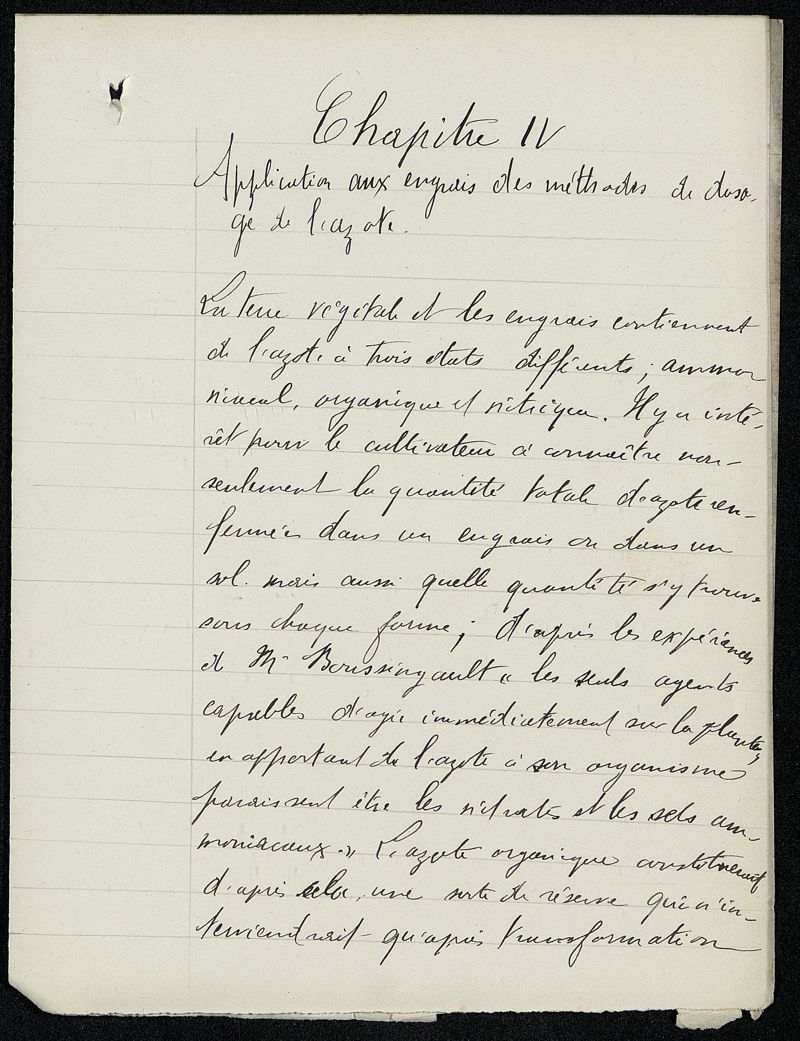 Chapitre IV
Application aux engrais des méthodes de dosa-
ge de l'azote.
La terre végétale et les engrais contiennent
de l'azote à trois états différents ; ammo
niacal, organique et nitrique. Il y a inté-
rêt pour le cultivateur à connaître non-
seulement la quantité totale d'azote ren-
fermée dans un engrais ou dans un
sol. mais aussi quelle quantité s'y trouve
sous chaque forme ; d'après les expériences
de Mr Boussingault " les seuls agents
capables d'agir immédiatement sur la plante,
en apportant de l'azote à son organisme
paraissent être les nitrates et les sels am-
moniacaux." L'azote organique constituerait
d'après cela, une sorte de réserve qui n'in-
terviendrait qu'après transformation